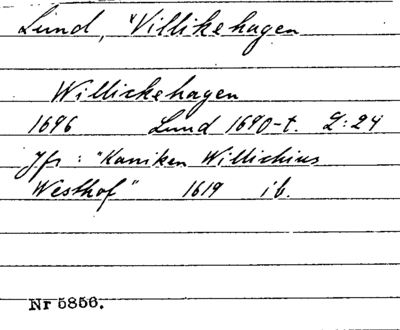 Lund, "Villikehagen
Willickehagen
1696 Lund 1690-t. L:24
Jfr: "Kaniken Willichius
Westhof" 1619 ib.
Nr 5856.